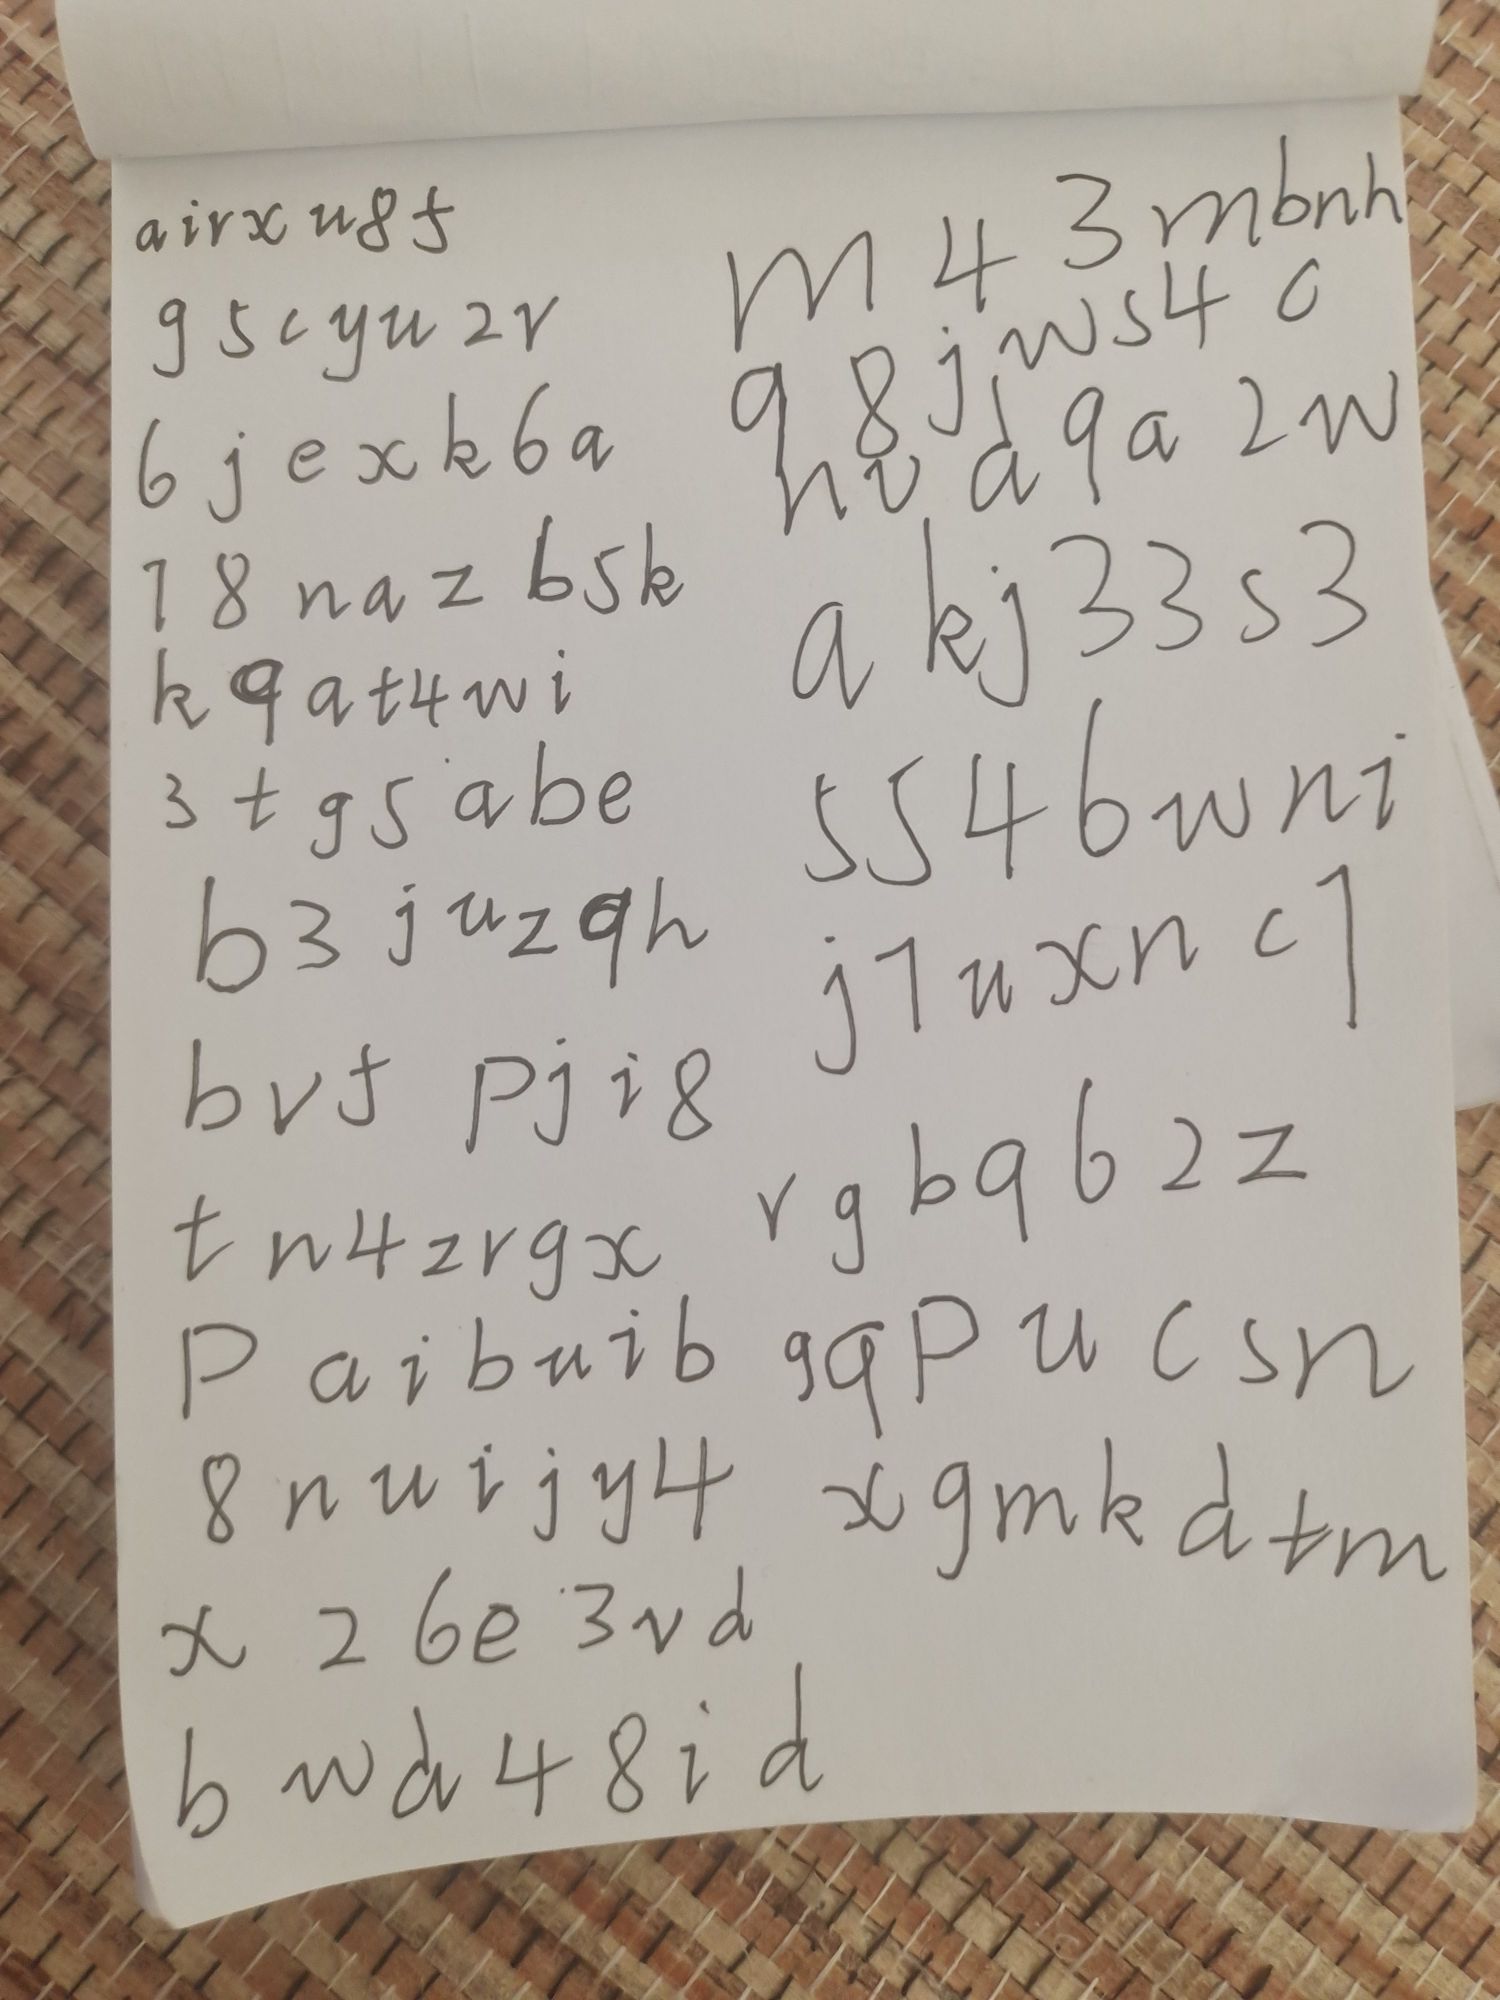 airxu85
g5cyuzr
6jexk6a
18nazb5k
kqat4wi
3tg5abe
b3juzqh
bvf pji8
tn4zrgx
paibuib
8nuijy4
x26e3vd
bwd48id
m43mbnh
q8jws4c
hvdqa2w
akj33s3
5546wni
j1uxnc1
rgbq62z
gqpucsn
xgmkdtm